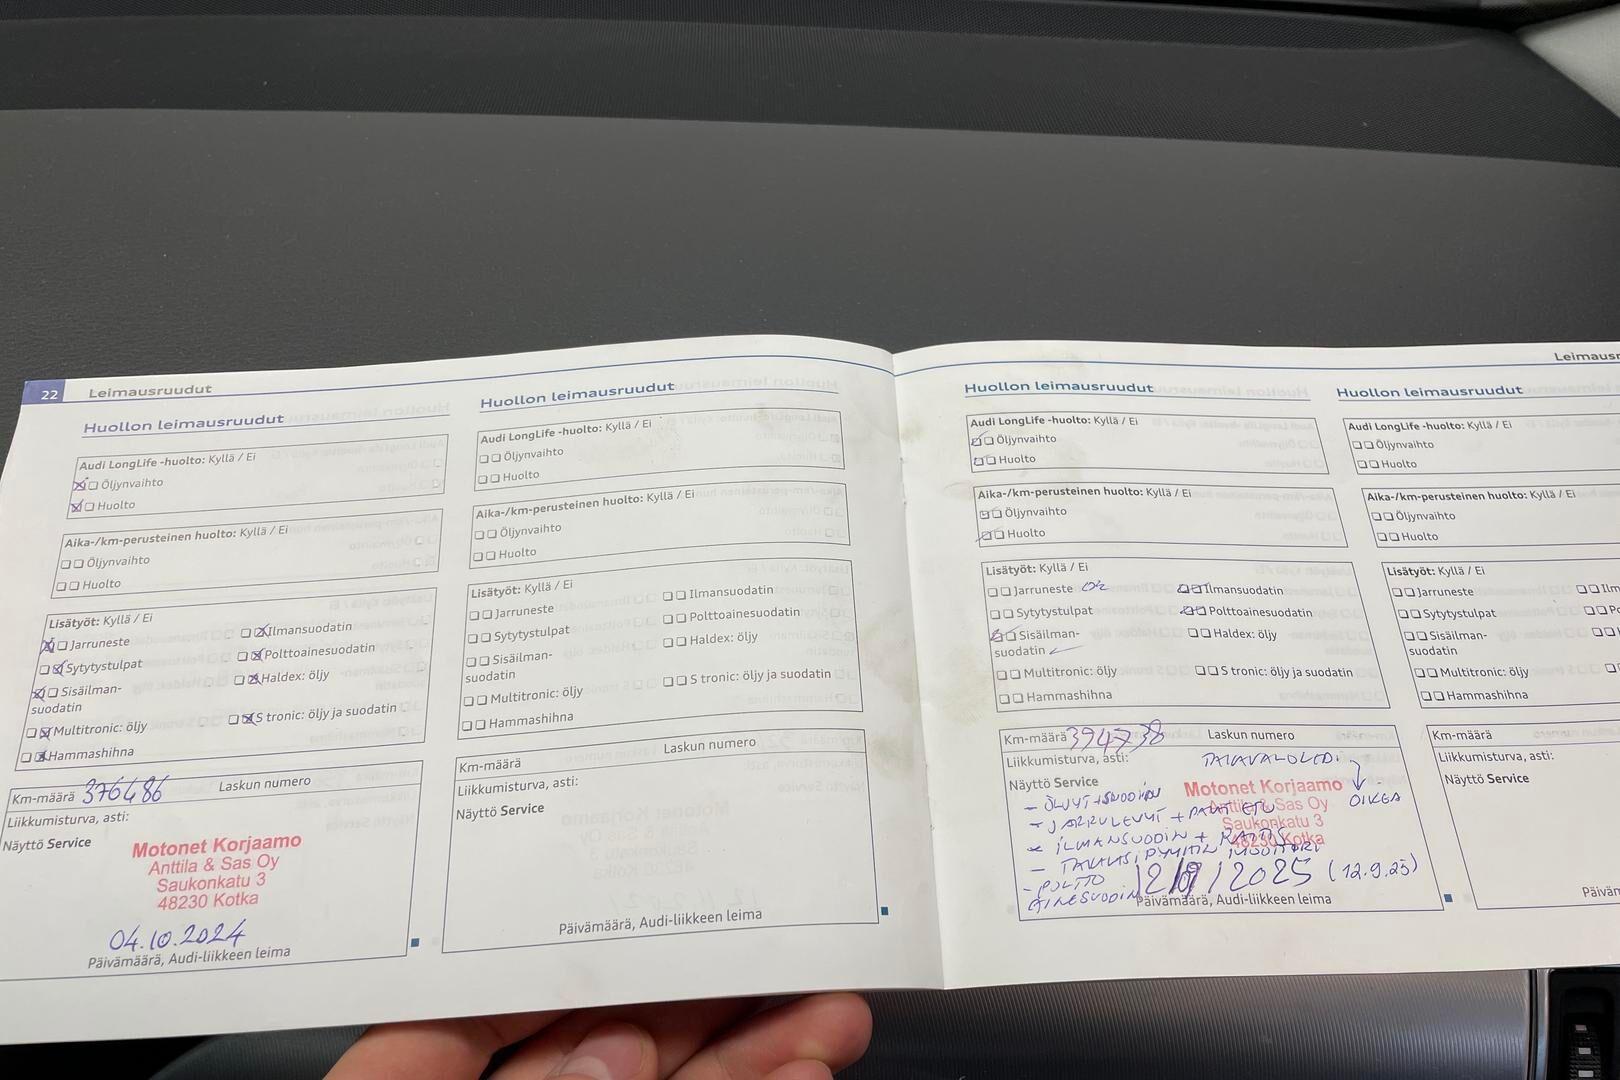 22 Leimausruudut
Huollon leimausruudut
Audi LongLife -huolto: Kyllä / Ei
Öljynvaihto
Huolto
Aika-/km-perusteinen huolto: Kyllä / Ei
Öljynvaihto
Huolto
Lisätyöt: Kyllä / Ei
Jarruneste
Ilmansuodatin
Sytytystulpat
Polttoainesuodatin
Sisäilman-
suodatin
Haldex: öljy
Multitronic: öljy
S tronic: öljy ja suodatin
Hammashihna
Km-määrä 376486 Laskun numero
Liikkumisturva, asti:
Näyttö Service
Motonet Korjaamo
Anttila & Sas Oy
Saukonkatu 3
48230 Kotka
04.10.2024
Päivämäärä, Audi-liikkeen leima
Huollon leimausruudut
Audi LongLife -huolto: Kyllä / Ei
Öljynvaihto
Huolto
Aika-/km-perusteinen huolto: Kyllä / Ei
Öljynvaihto
Huolto
Lisätyöt: Kyllä / Ei
Jarruneste
Ilmansuodatin
Sytytystulpat
Polttoainesuodatin
Sisäilman-
suodatin
Haldex: öljy
Multitronic: öljy
S tronic: öljy ja suodatin
Hammashihna
Km-määrä Laskun numero
Liikkumisturva, asti:
Näyttö Service
Päivämäärä, Audi-liikkeen leima
Huollon leimausruudut
Audi LongLife -huolto: Kyllä / Ei
Öljynvaihto
Huolto
Aika-/km-perusteinen huolto: Kyllä / Ei
Öljynvaihto
Huolto
Lisätyöt: Kyllä / Ei
Jarruneste
Ilmansuodatin
Sytytystulpat
Polttoainesuodatin
Sisäilman-
suodatin
Haldex: öljy
Multitronic: öljy
S tronic: öljy ja suodatin
Hammashihna
Km-määrä 394738 Laskun numero
Liikkumisturva, asti:
Näyttö Service
OIKEA
Motonet Korjaamo
Anttila & Sas Oy
Saukonkatu 3
48230 Kotka
- JARRULEVYT + PALAT ETU
- ILMANSUODIN +
- POLTTO
2025 (12.9.25)
Päivämäärä, Audi-liikkeen leima
Leimausr
Huollon leimausruudut
Audi LongLife -huolto: Kyllä / Ei
Öljynvaihto
Huolto
Aika-/km-perusteinen huolto: Kyllä / Ei
Öljynvaihto
Huolto
Lisätyöt: Kyllä / Ei
Jarruneste
Ilm
Sytytystulpat
Po
Sisäilman-
suodatin
Multitronic: öljy
Hammashihna
Km-määrä
Liikkumisturva, asti:
Näyttö Service
Päiväm